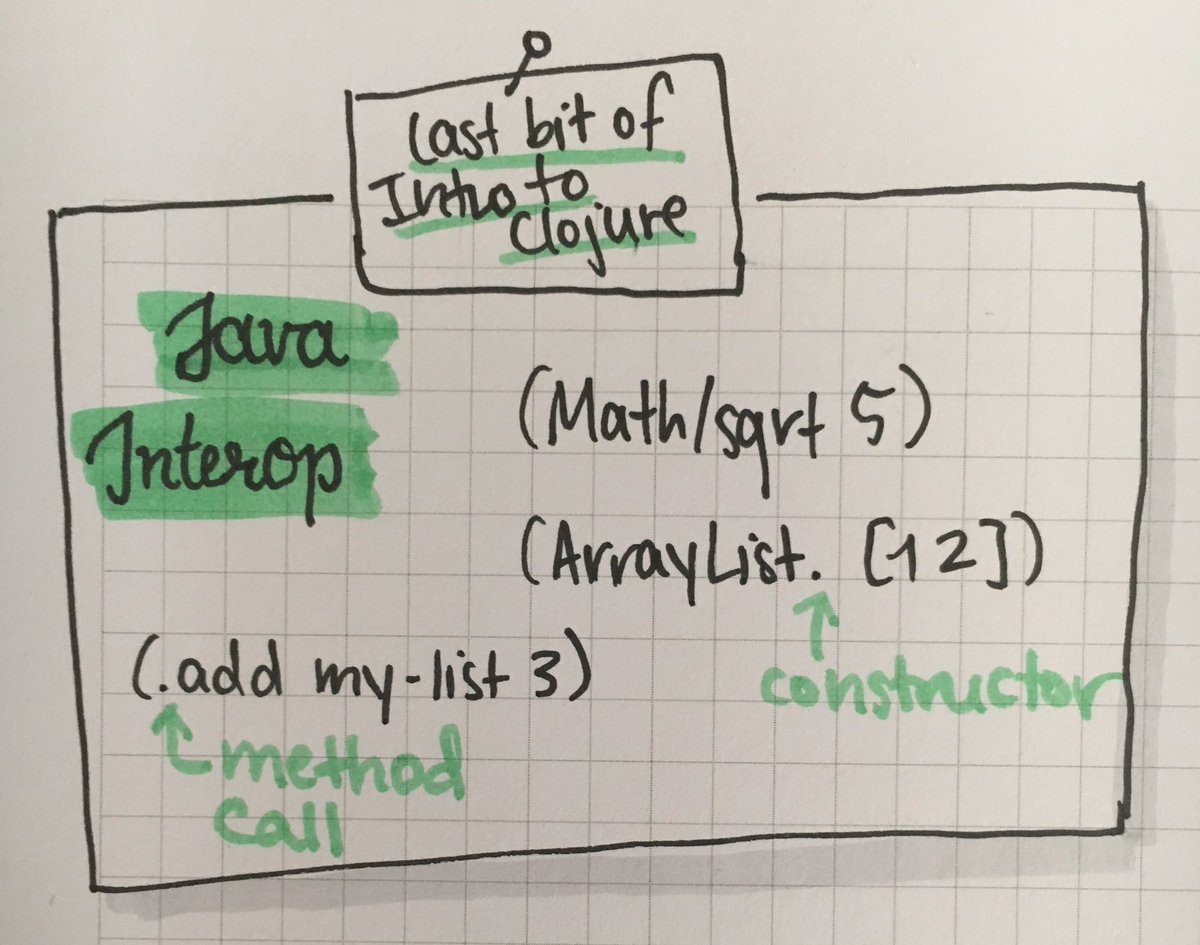 Last bit of
Intro to
Clojure
Java
Interop
(Math/sqrt 5)
(ArrayList. [1 2])
constructor
(.add my-list 3)
method
call